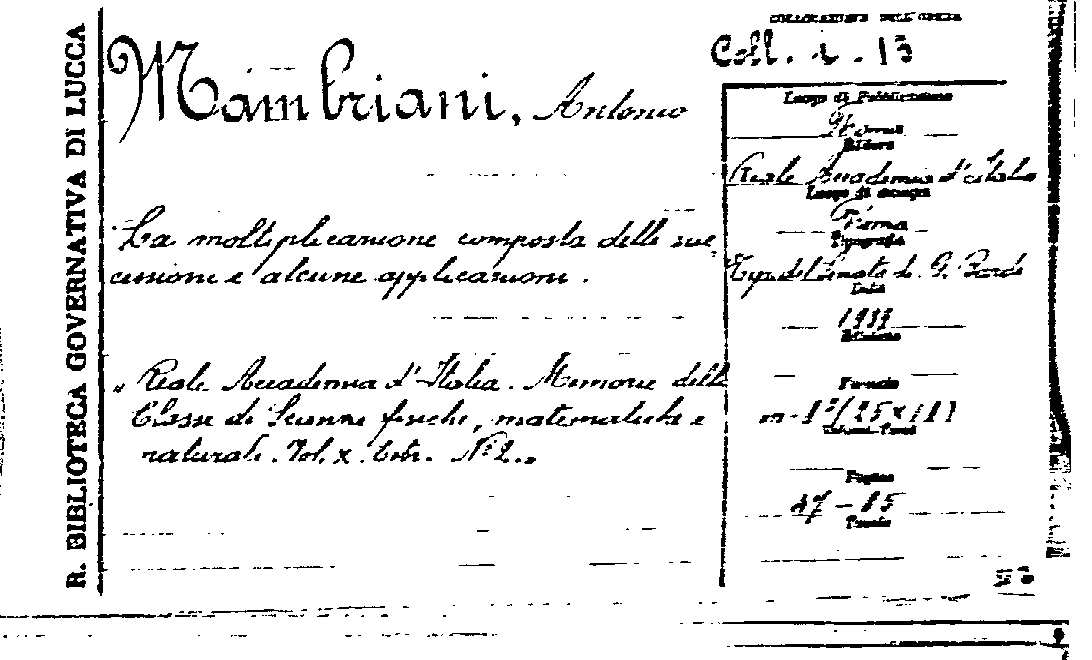 R. BIBLIOTECA GOVERNATIVA DI LUCCA
COLLOCAZIONE DELL'OPERA
Coll. i. 13
Mambriani, Antonio
La moltiplicazione composta delle suc-
cessioni e alcune applicazioni.
"Reale Accademia d'Italia. Memorie della
Classe di Scienze fisiche, matematiche e
naturali. Vol. X. Estr. N° 2.„
Luogo di Pubblicazione
Roma
Editore
Reale Accademia d'Italia
Luogo di stampa
Roma
Tipografia
Tip. del Senato di G. Bardi
Data
Edizione
Formato
in-8° (25×18)
Pagine
47-85
Tavole